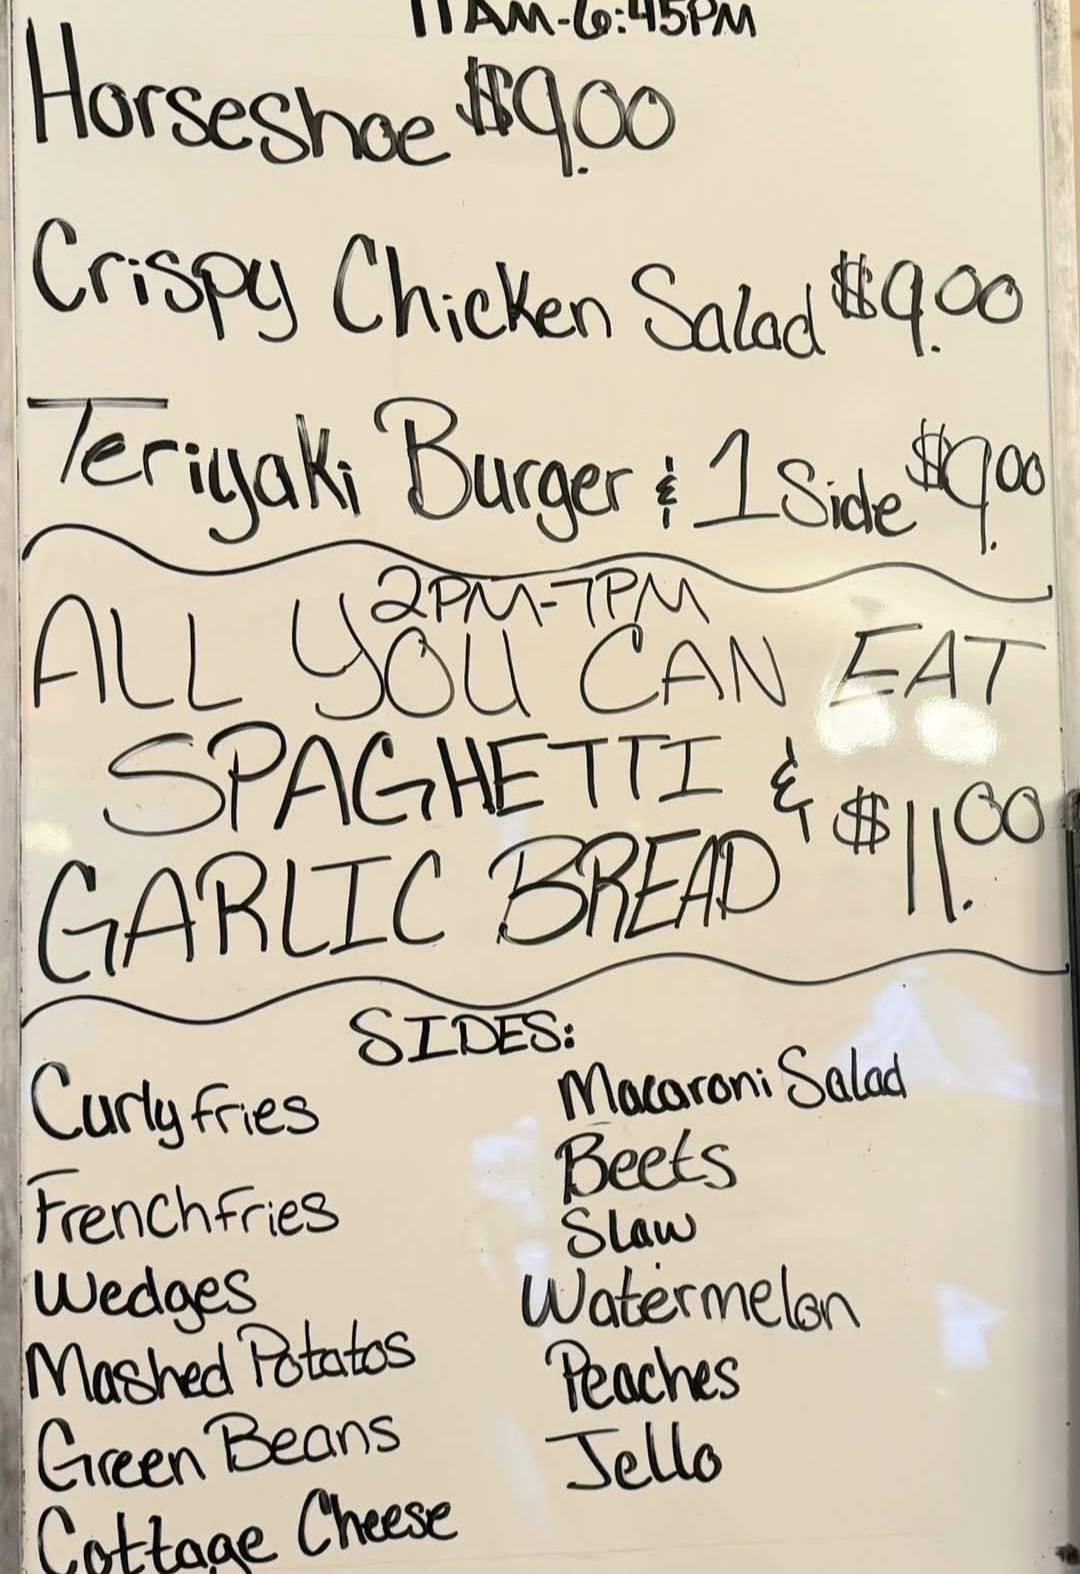 11AM-6:45PM
Horseshoe $9.00
Crispy Chicken Salad $9.00
Teriyaki Burger & 1 Side $9.00
2PM-7PM
ALL YOU CAN EAT
SPAGHETTI &
GARLIC BREAD $11.00
SIDES:
Curly fries
French fries
Wedges
Mashed Potatos
Green Beans
Cottage Cheese
Macaroni Salad
Beets
Slaw
Watermelon
Peaches
Jello